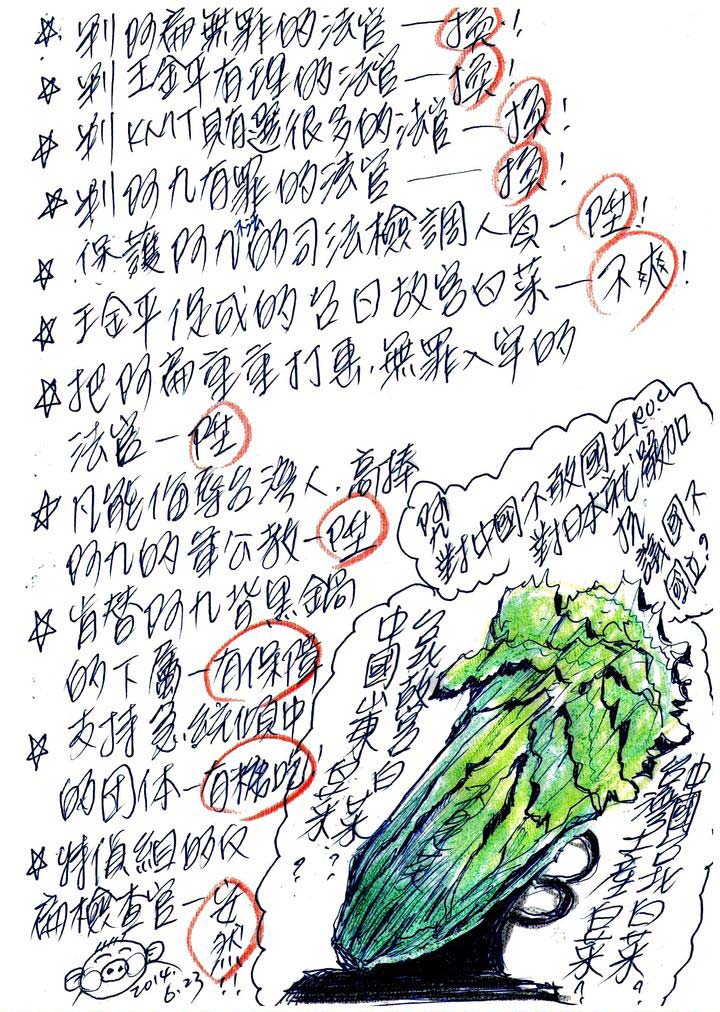 ☆判阿扁無罪的法官—換!
☆判王金平有理的法官—換!
☆判KMT賄選很多的法官—換!
☆判阿九有罪的法官——換!
☆保護阿九不法的司法檢調人員—陞!
☆王金平促成的台日故宮白菜—不爽!
☆把阿扁重重打壓.無罪入牢的
法官—陞
☆凡能傷害台灣人.高捧
阿九的軍公教—陞
☆肯替阿九背黑鍋
的下屬—有保障
☆支持急統傾中
的团体—有糖吃
☆特偵組的反
扁檢查官—当然!!
2014.
6.23
阿九
對中國不敢國立R.O.C
對日本就嚴加
抗議國不
國立?
台北故宮白菜?
中國山東白菜?
中國台北白菜?
台灣土產白菜?